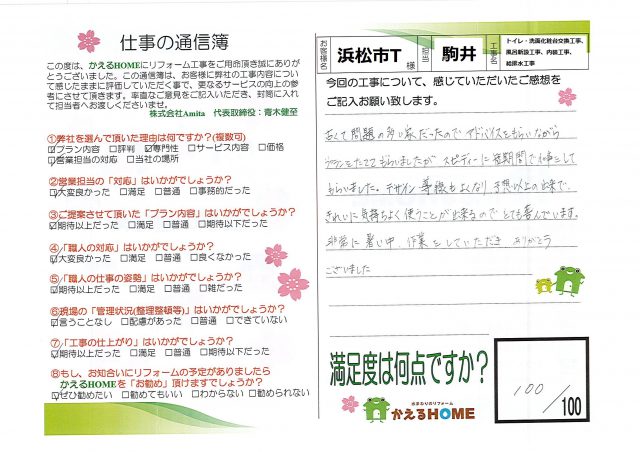 仕事の通信簿
この度は、かえるHOMEにリフォーム工事をご用命頂き誠にありが
とうございました。この通信簿は、お客様に弊社の工事内容につい
て感じたままに評価していただく事で、更なるサービスの向上の参
考にさせて頂きます。率直なご意見をご記入いただき、封筒に入れ
て担当者へお渡しくださいませ。
株式会社Amita 代表取締役：青木健至
①弊社を選んで頂いた理由は何ですか？(複数可)
☑プラン内容 □評判 ☑専門性 □サービス内容 □価格
☑営業担当の対応 □当社の場所
②営業担当の「対応」はいかがでしょうか？
☑大変良かった □満足 □普通 □事務的だった
③ご提案させて頂いた「プラン内容」はいかがでしょうか？
☑期待以上だった □満足 □普通 □期待以下だった
④「職人の対応」はいかがでしょうか？
☑大変良かった □満足 □普通 □良くなかった
⑤「職人の仕事の姿勢」はいかがでしょうか？
☑期待以上だった □満足 □普通 □雑だった
⑥現場の「管理状況(整理整頓等)」はいかがでしょうか？
☑言うことなし □配慮があった □普通 □できていない
⑦「工事の仕上がり」はいかがでしょうか？
☑期待以上だった □満足 □普通 □期待以下だった
⑧もし、お知合いにリフォームの予定がありましたら
かえるHOMEを「お勧め」頂けますでしょうか？
☑ぜひ勧めたい □勧めてもいい □わからない □勧められない
お客様名 浜松市T 様 担当 駒井 工事名 トイレ・洗面化粧台交換工事、
風呂新設工事、内装工事、
給排水工事
今回の工事について、感じていただいたご感想を
ご記入お願い致します。
古くて問題の多い家だったのでアドバイスをもらいながら
プランをたててもらいましたがスピーディーに短期間で仕事をして
もらいました。デザイン等様もよくなり予想以上の出来で、
きれいに気持ちよく使うことが出来るのでとても喜んでいます。
非常に暑い中、作業をしていただきありがとう
ございました
満足度は何点ですか？
水まわりのリフォーム
かえるHOME
100/100